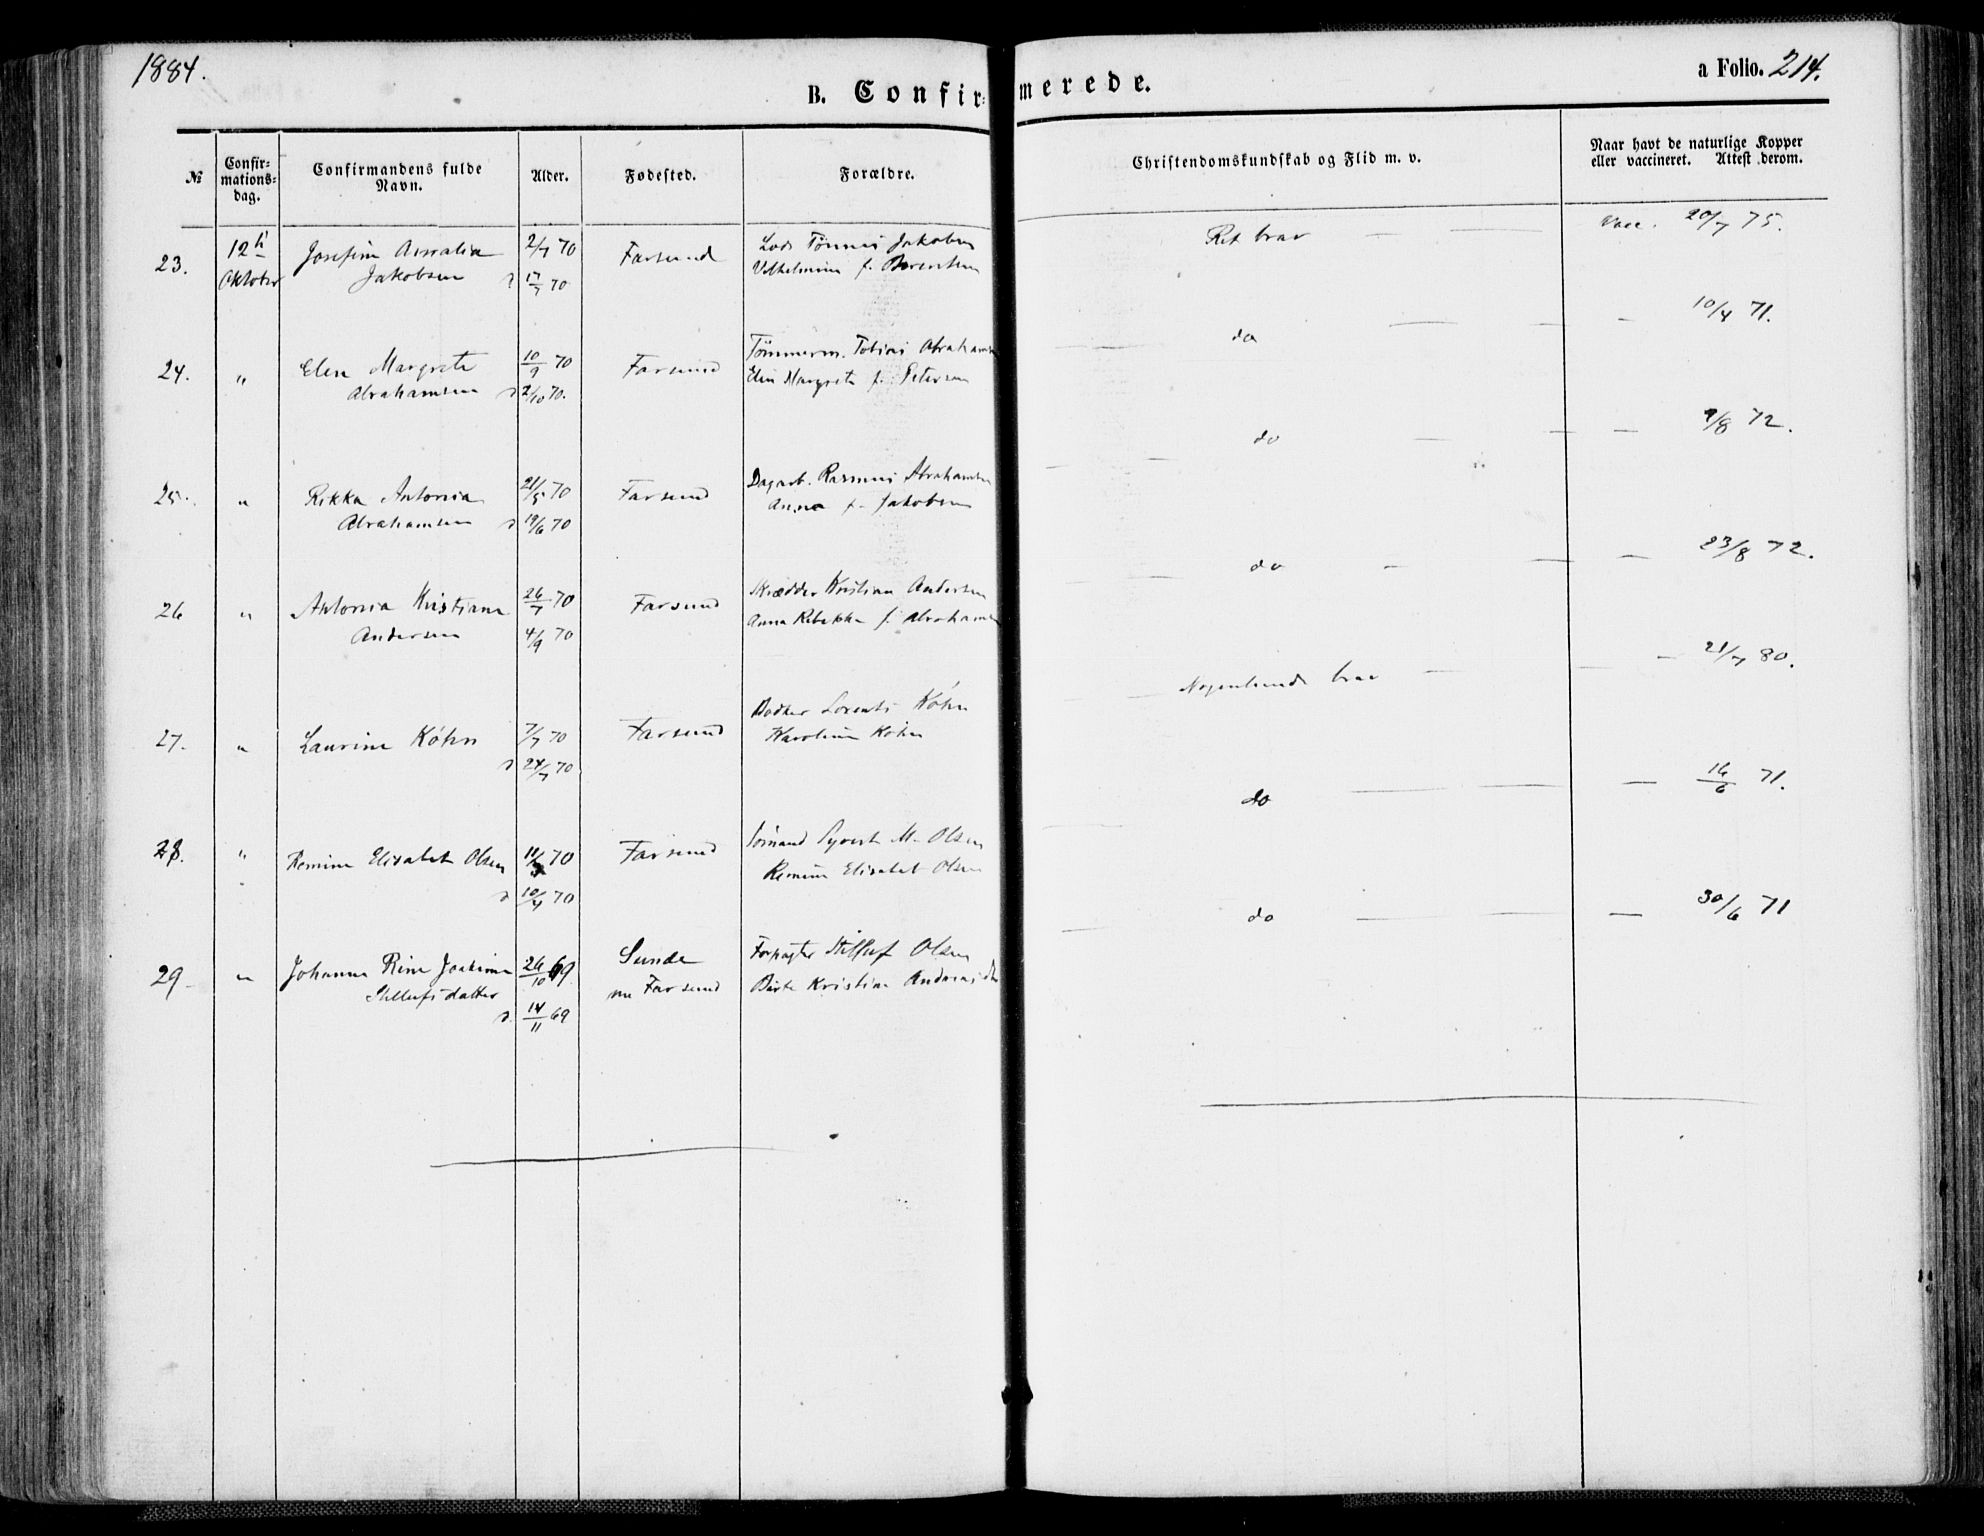 1884.
B. Confir-
merede.
a Folio. 214.
№
Confir-
mations-
dag.
Confirmandens fulde
Navn.
Alder.
Fødested.
Forældre.
Christendomskundskab og Flid m. v.
Naar havt de naturlige Kopper
eller vaccineret. Attest derom.
23.
12
Oktober
Josefine
Jakobsen
2/7 70
17/7 70
Farsund
Lods Tønnes Jakobsen
Vilhelmine f. Berentsen
Ret brav
Vacc. 20/7 75.
24.
"
Elen Margrete
Abrahamsen
10/9 70
2/10 70.
Farsund
Tømmerm. Tobias Abrahamsen
Elen Margrete f. Petersen
do
— 10/4 71.
25.
"
Rikka Antonia
Abrahamsen
21/5 70
19/6 70
Farsund
Dagarb. Rasmus Abrahamsen
Anna f. Jakobsen
do
— 9/8 72.
26
"
Antonia Kristiane
Andersen
26/7 70
4/9 70
Farsund
Skrædder Kristian Andersen
Anna Rebekka f. Abrahamsen
do
— 23/8 72.
27.
"
Laurine Køhn
7/7 70
24/7 70
Farsund
Bødker Lorents Køhn
Karoline Køhn
Nogenlunde brav
— 21/7 80.
28.
"
Remine Elisabet Olsen
11/3 70
10/4 70
Farsund
Sømand Syvert M. Olsen
Remine Elisabet Olsen
do
— 16/6 71.
29
"
Johanne Rine Joakime
Stillufsdatter
26/10 69.
14/11 69
Sunde
Farsund
Forpagter Stilluf Olsen
Birte Kristine
do
— 30/6 71